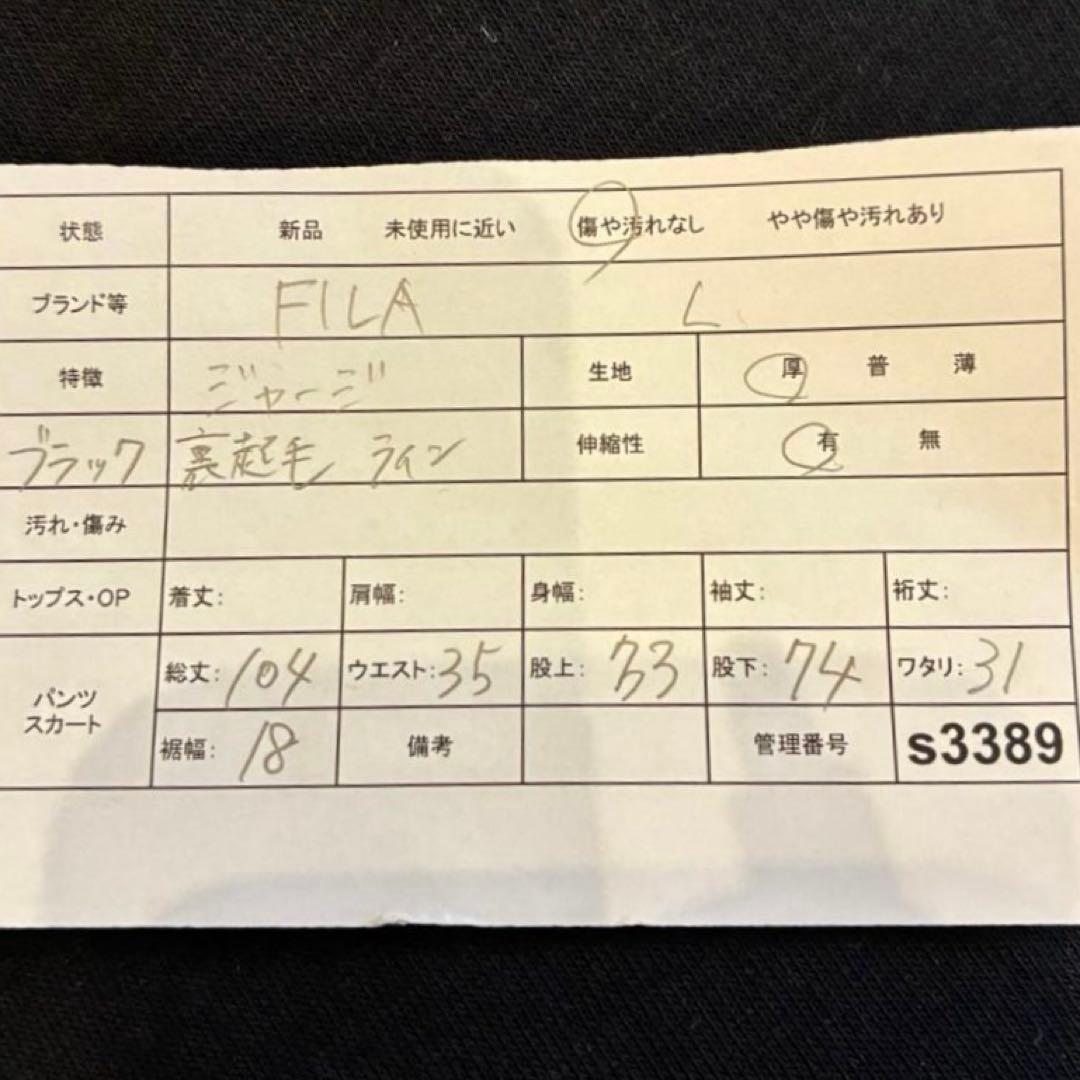 状態 新品 未使用に近い 傷や汚れなし やや傷や汚れあり
ブランド等 FILA L
特徴 ジャージ 生地 厚 普 薄
ブラック 裏起毛 ライン 伸縮性 有 無
汚れ・傷み
トップス・OP 着丈: 肩幅: 身幅: 袖丈: 裄丈:
パンツ スカート 総丈:104 ウエスト:35 股上:33 股下:74 ワタリ:31
裾幅:18 備考 管理番号 s3389